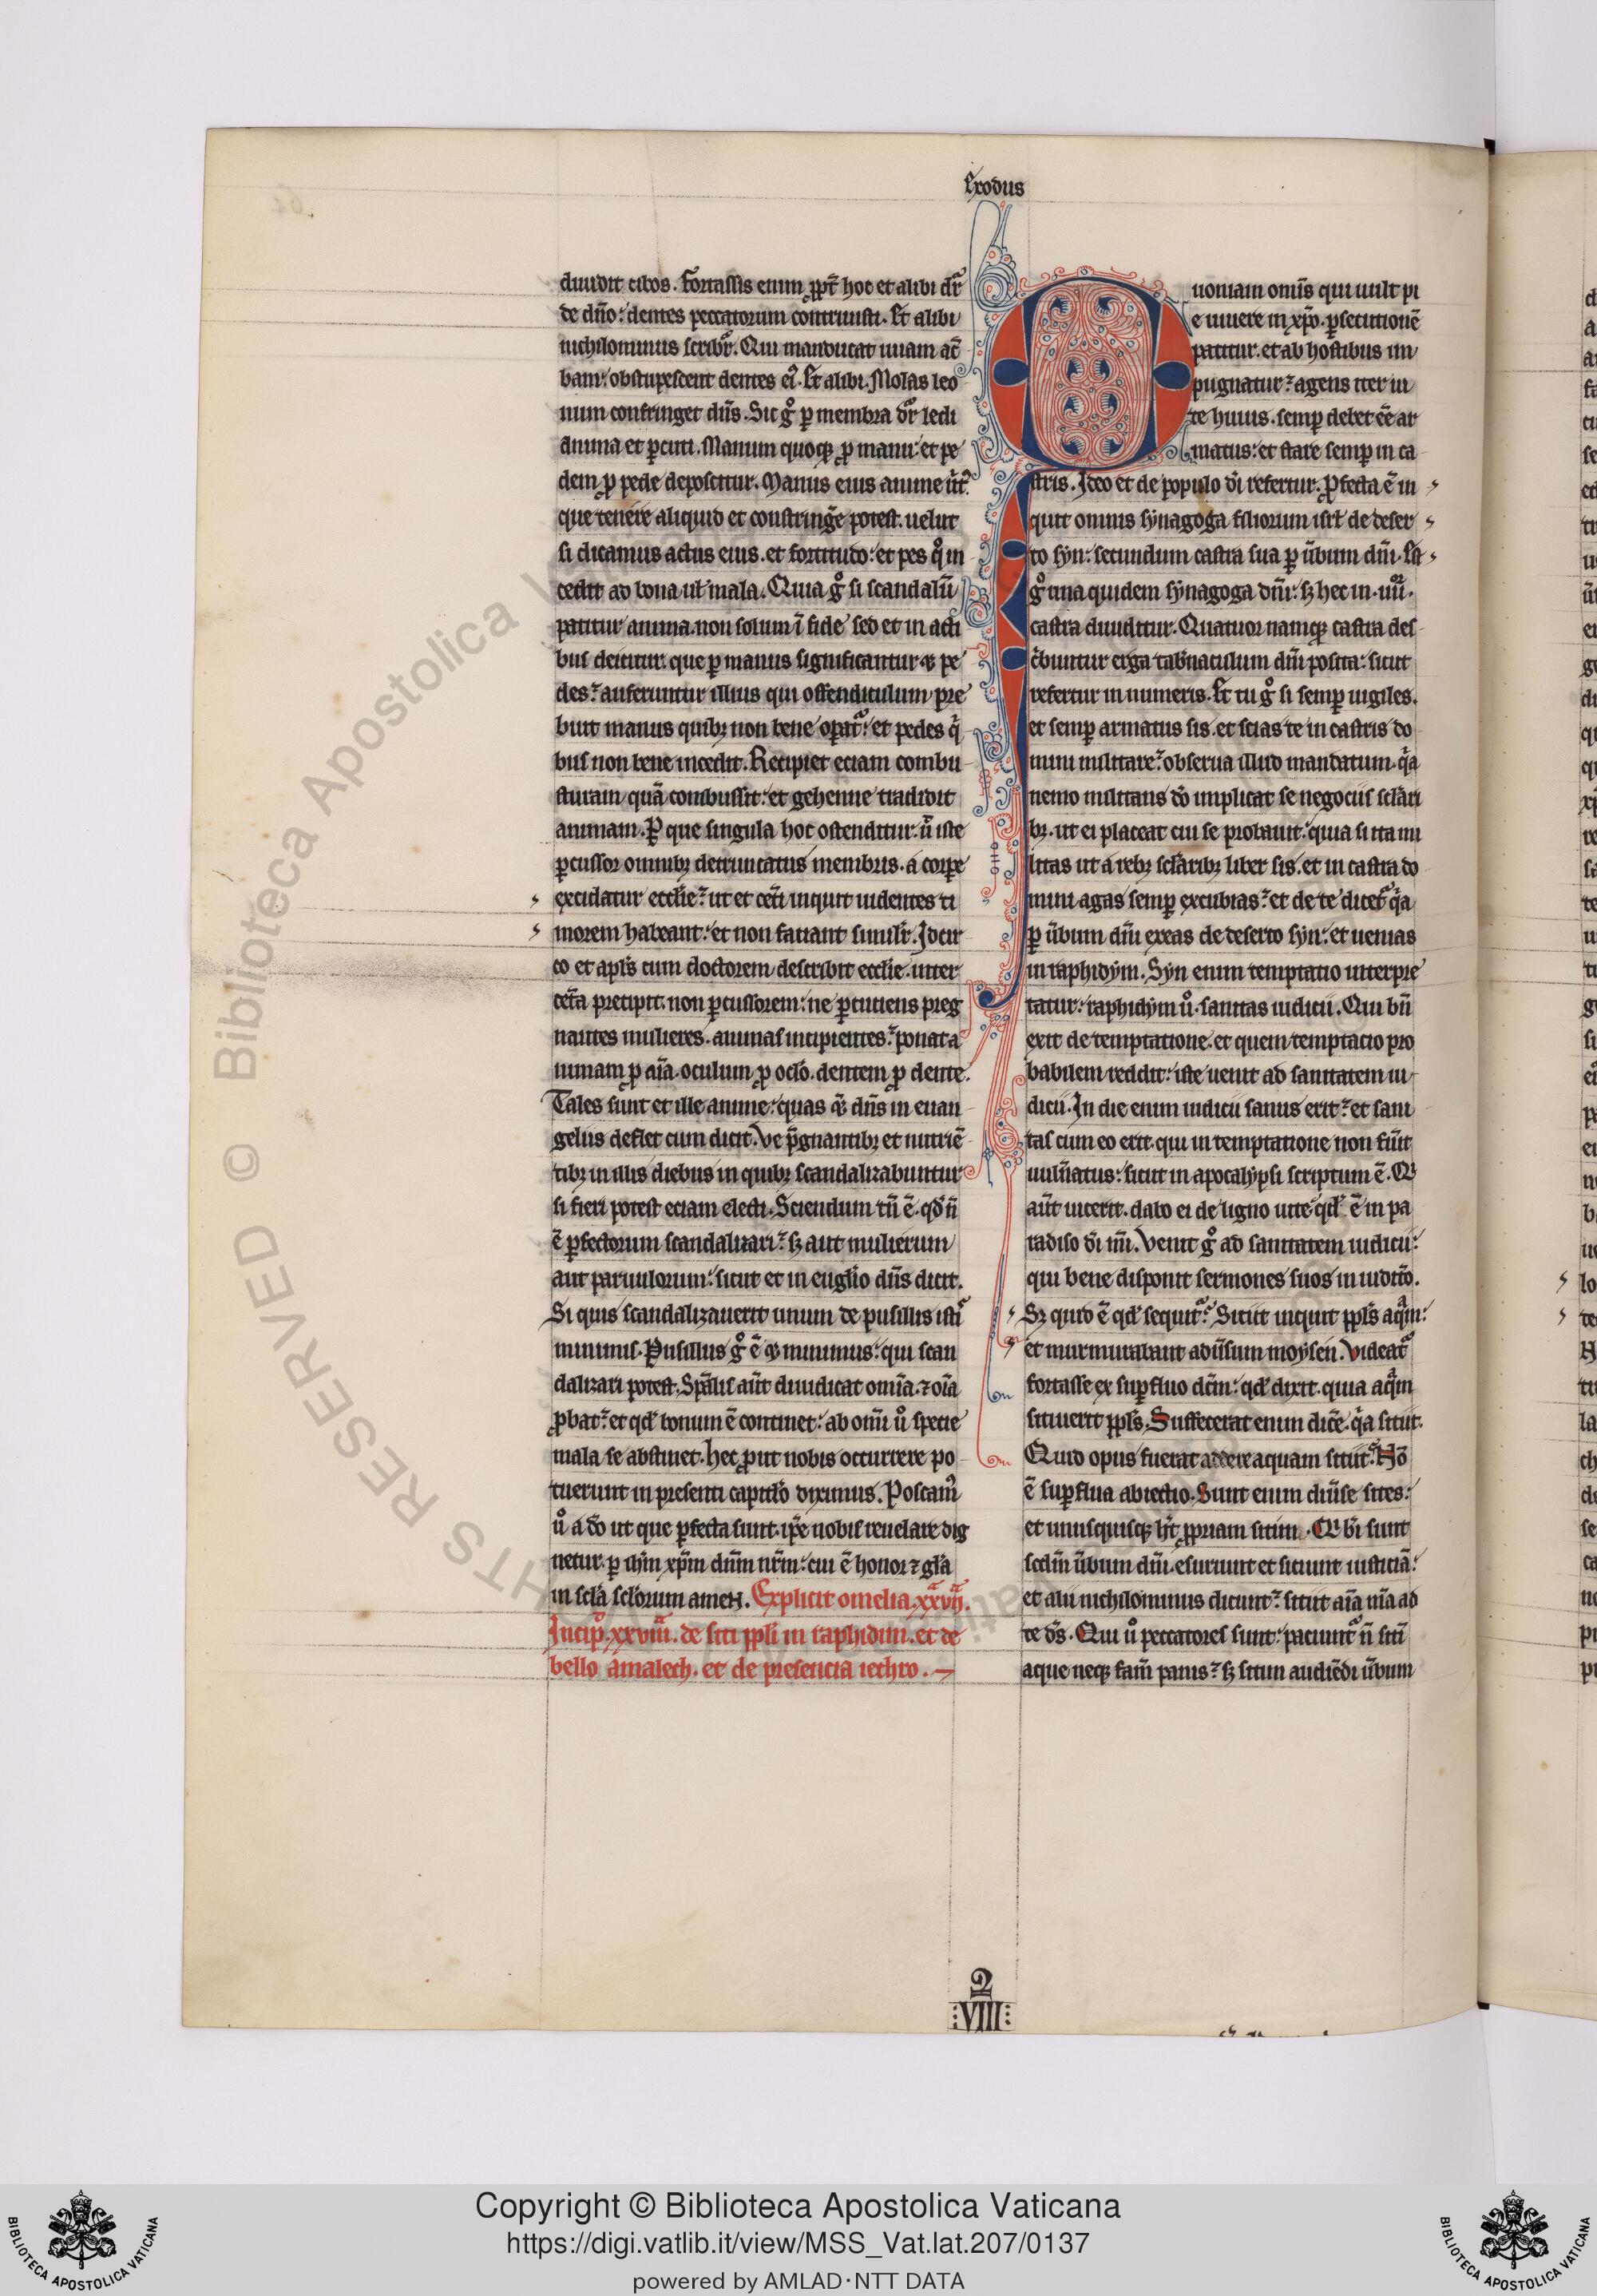 Exodus
diuidit cibos. Fortassis enim ꝓpt̄ hoc et alibi dr̄
de dn̄o: dentes peccatorum contriuisti. Et alibi
nichilominus scribit᷑. Qui manducat uuam ac̄
bam: obstupescent dentes eiꝰ. Et alibi. Molas leo
num confringet dn̄s. Sic gͦ ꝑ membra dr̄ ledi
anima et ꝑcuti. Manum quoqꝫ ꝓ manu: et pe
dem ꝓ pede deposcitur. Manus eius anime uirtꝰ
que tenere aliquid et constringe᷑ potest. uelut
si dicamus actus eius. et fortitudo: et pes qͦ in
cedit ad bona ul̄ mala. Quia gͦ si scandalū
patitur anima. non solum ī fide sed et in acti
bus deicitur. que ꝑ manus significantur ⁊ pe
des: auferuntur illius qui offendiculum pre
buit manus quibꝫ non bene oꝑat᷑: et pedes qͥ
bus non bene incedit. Recipiet eciam combu
sturam quā combussit: et gehenne tradidit
animam. Per que singula hoc ostenditur. ut iste
ꝑcussor omnibꝫ detruncatus membris. a corꝑe
excidatur eccl̄ie: ut et cet̄i inquit uidentes ti
morem habeant: et non faciant similit̄. Idcir
co et apl̄s cum doctorem describit eccl̄ie. inter
cet̄a precipit. non ꝑcussorem: ne ꝑcutiens preg
nantes mulieres. animas incipientes: ponat a
nimam ꝓ aīa. oculum ꝓ oclo. dentem ꝓ dente.
Tales sunt et ille anime: quas ⁊ dn̄s in euan
gelus deflet cum dicit. Ve p̄gnantibꝫ et nutriē
tibꝫ in illis diebus in quibꝫ scandalizabuntur
si fieri potest eciam electi. Sciendum tn̄ ē. qd̄ n̄
ē ꝑfectorum scandalizari: sꝫ aut mulierum
aut paruulorum: sicut et in eugl̄io dn̄s dicit.
Si quis scandalizauerit unum de pusillis istis
minimis. Pusillus gͦ ē ⁊ minimus: qui scan
dalizari potest. Sp̄alis aūt diiudicat omīa. ⁊ oīa
ꝓbat: et qd̄ bonum ē continet: ab om̄i uͦ specie
mala se abstinet. hec ꝓut nobis occurrere po
tuerunt in presenti capitl̄o diximus. Poscamꝰ
uͦ a dō ut que ꝑfecta sunt. ip̄e nobis reuelare dig
netur. ꝑ ih̄m xp̄m dn̄m nr̄m: cui ē honor ⁊ gl̄a
in scl̄a scl̄orum amen. Explicit omelia. xxvii.
Incipͦ. xxviii. de siti ppl̄i in raphidim. et de
bello amalech. et de presencia iethro.
Quoniam omīs qui uult pi
e uiuere in xp̄o. ꝑsecutionē
patitur. et ab hostibus im
pugnatur: agens iter ui
te huius. semꝑ debet eē ar
matus: et stare semꝑ in ca
stris. Ideo et de populo dī refertur. Profecta ē in
quit omnis synagoga filiorum isrl̄ de deser
to syn: secundum castra sua ꝑ ūbum dn̄i. Est
gͦ una quidem synagoga dn̄i: sꝫ hec in .iiiiͦʳ.
castra diuiditur. Quatuor namqꝫ castra des
c̄buntur erga tab̄naculum dn̄i posita: sicut
refertur in numeris. Et tu gͦ si semꝑ uigiles.
et semꝑ armatus sis. et scias te in castris do
mini militare: obserua illud mandatum. qͥa
nemo militans dō implicat se negociis scl̄ari
bꝫ. ut ei placeat cui se probauit: quia si ita mi
litas ut a rebꝫ scl̄aribꝫ liber sis. et in castra do
mini agas semꝑ excubias: et de te dicet᷑ qͥa
ꝑ ūbum dn̄i exeas de deserto syn: et uenias
in raphidym. Syn enim temptatio interpre
tatur: raphidym uͦ. sanitas iudicii. Qui bn̄
exit de temptatione. et quem temptatio pro
babilem reddit: iste uenit ad sanitatem iu
dicii. In die enim iudicii sanus erit: et sani
tas cum eo erit. qui in temptatione non fuīt
uuln̄atus: sicut in apocalypsi scriptum ē. Qui
aūt uicerit. dabo ei de ligno uite: qd̄ ē in pa
radiso dī mī. Venit gͦ ad sanitatem iudicii:
qui bene disponit sermones suos in iudic̄o.
Sꝫ quid ē qd̄ sequit᷑: Sitiit inquit ppl̄s aqͣm:
et murmurabant aduīsum moysen. Videat᷑
fortasse ex suꝑfluo dc̄m: qd̄ dixit. quia aqͣm
sitiuerit ppl̄s. Suffecerat enim dic̄e. qͥa sitiit.
Quid opus fuerat addere aquam sitiit: Nō
ē suꝑflua abiectio. Sunt enim diūse sites:
et unusquisqꝫ h̄t ꝓpriam sitim. Qui bt̄i sunt
scdm̄ ūbum dn̄i. esuriunt et siciunt iusticiā:
et alii nichilominus dicunt: sitiit aīa mīa ad
te ds̄. Qui uͦ peccatores sunt: paciunt᷑ n̄ siti
aque neqꝫ fam̄ panis: sꝫ sitim audiēdi ūbum
VIII
Copyright © Biblioteca Apostolica Vaticana
https://digi.vatlib.it/view/MSS_Vat.lat.207/0137
powered by AMLAD·NTT DATA